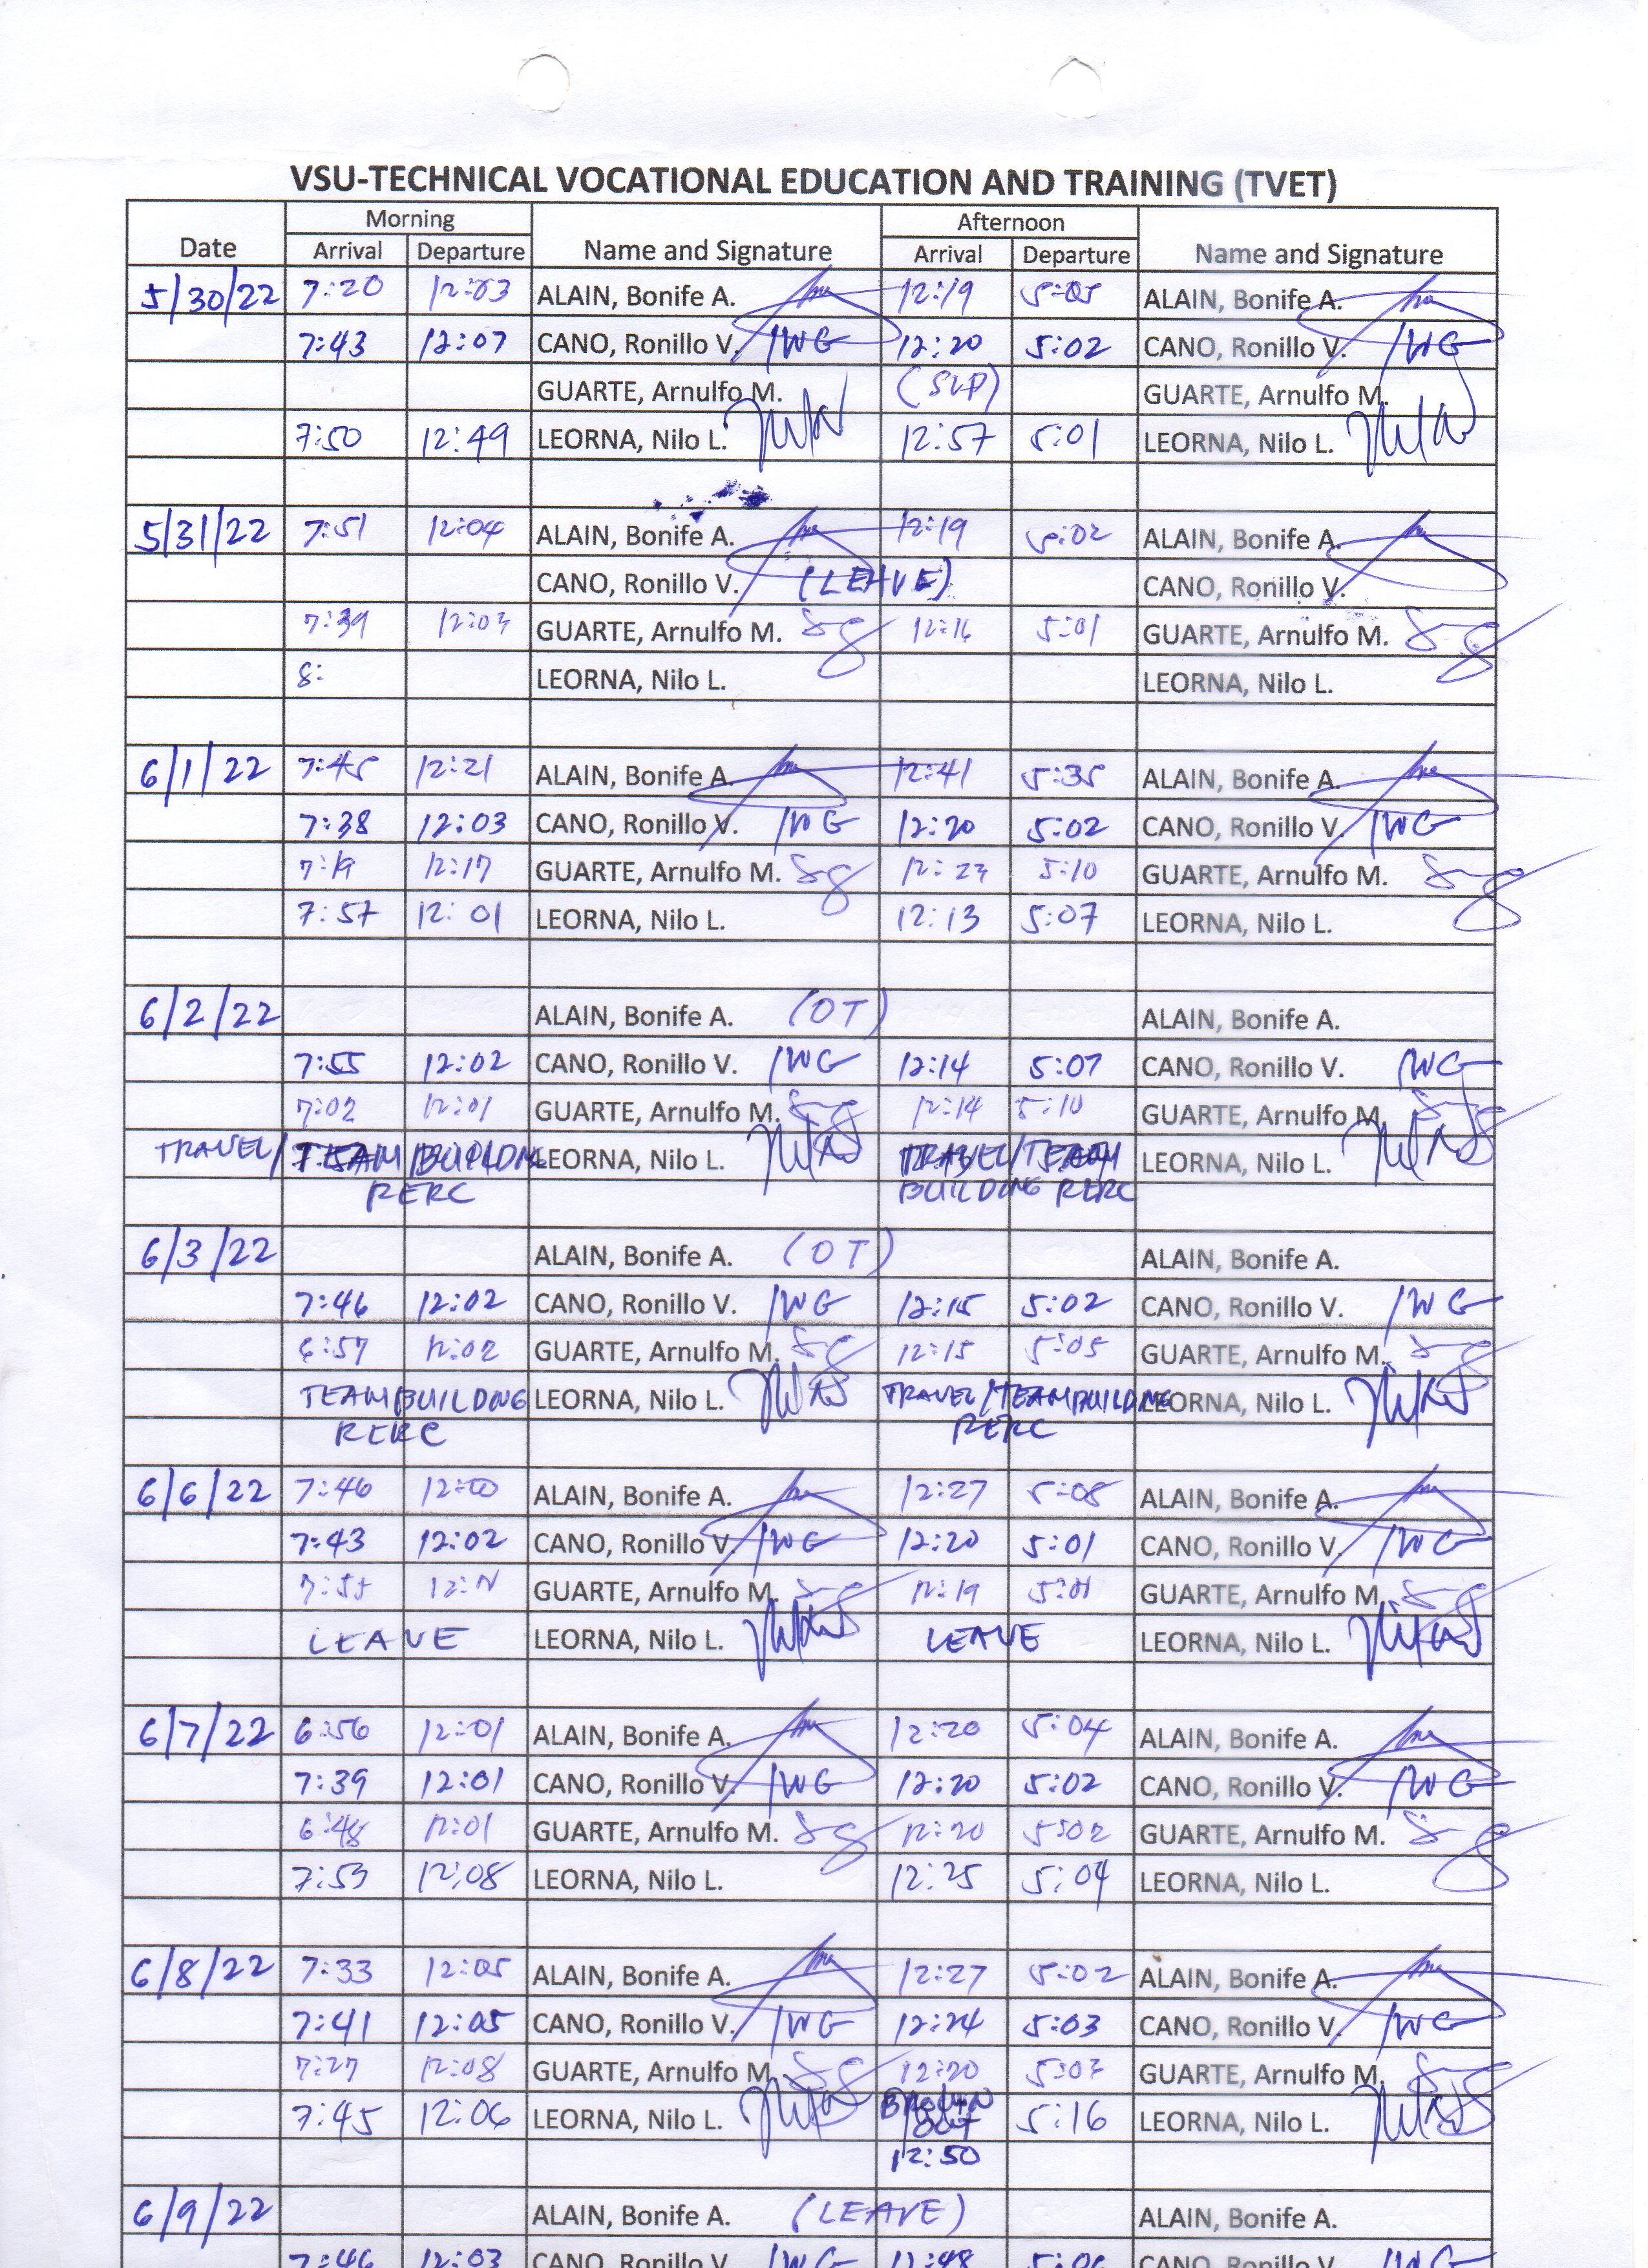 VSU-TECHNICAL VOCATIONAL EDUCATION AND TRAINING (TVET)
Date Morning Name and Signature Afternoon Name and Signature
Arrival Departure Arrival Departure
5/30/22 7:20 12:03 ALAIN, Bonife A. 12:19 5:05 ALAIN, Bonife A.
7:43 12:07 CANO, Ronillo V. 12:20 5:02 CANO, Ronillo V.
GUARTE, Arnulfo M. (SLP) GUARTE, Arnulfo M.
7:50 12:49 LEORNA, Nilo L. 12:57 5:01 LEORNA, Nilo L.
5/31/22 7:51 12:04 ALAIN, Bonife A. 12:19 5:02 ALAIN, Bonife A.
CANO, Ronillo V. (LEAVE) CANO, Ronillo V.
7:39 12:03 GUARTE, Arnulfo M. 12:16 5:01 GUARTE, Arnulfo M.
8: LEORNA, Nilo L. LEORNA, Nilo L.
6/1/22 7:45 12:21 ALAIN, Bonife A. 12:41 5:35 ALAIN, Bonife A.
7:38 12:03 CANO, Ronillo V. 12:20 5:02 CANO, Ronillo V.
7:19 12:17 GUARTE, Arnulfo M. 12:23 5:10 GUARTE, Arnulfo M.
7:57 12:01 LEORNA, Nilo L. 12:13 5:07 LEORNA, Nilo L.
6/2/22 ALAIN, Bonife A. (OT) ALAIN, Bonife A.
7:55 12:02 CANO, Ronillo V. 12:14 5:07 CANO, Ronillo V.
7:02 12:01 GUARTE, Arnulfo M. 12:14 5:10 GUARTE, Arnulfo M.
TRAVEL/TEAM BUILDING LEORNA, Nilo L. TRAVEL/TEAM LEORNA, Nilo L.
RERC BUILDING RERC
6/3/22 ALAIN, Bonife A. (OT) ALAIN, Bonife A.
7:46 12:02 CANO, Ronillo V. 12:15 5:02 CANO, Ronillo V.
6:57 12:02 GUARTE, Arnulfo M. 12:15 5:05 GUARTE, Arnulfo M.
TEAMBUILDNG LEORNA, Nilo L. TRAVEL/TEAMBUILDNG LEORNA, Nilo L.
RERC RERC
6/6/22 7:46 12:00 ALAIN, Bonife A. 12:27 5:08 ALAIN, Bonife A.
7:43 12:02 CANO, Ronillo V. 12:20 5:01 CANO, Ronillo V.
7:55 GUARTE, Arnulfo M. 12:19 5:01 GUARTE, Arnulfo M.
LEAVE LEORNA, Nilo L. LEAVE LEORNA, Nilo L.
6/7/22 6:56 12:01 ALAIN, Bonife A. 12:20 5:04 ALAIN, Bonife A.
7:39 12:01 CANO, Ronillo V. 12:20 5:02 CANO, Ronillo V.
6:48 12:01 GUARTE, Arnulfo M. 12:20 5:02 GUARTE, Arnulfo M.
7:53 12:08 LEORNA, Nilo L. 12:25 5:04 LEORNA, Nilo L.
6/8/22 7:33 12:05 ALAIN, Bonife A. 12:27 5:02 ALAIN, Bonife A.
7:41 12:05 CANO, Ronillo V. 12:24 5:03 CANO, Ronillo V.
7:27 12:08 GUARTE, Arnulfo M. 12:20 5:03 GUARTE, Arnulfo M.
7:45 12:06 LEORNA, Nilo L. BROWN OUT 5:16 LEORNA, Nilo L.
12:50
6/9/22 ALAIN, Bonife A. (LEAVE) ALAIN, Bonife A.
7:46 12:03 CANO, Ronillo V. 12:48 5:06 CANO, Ronillo V.